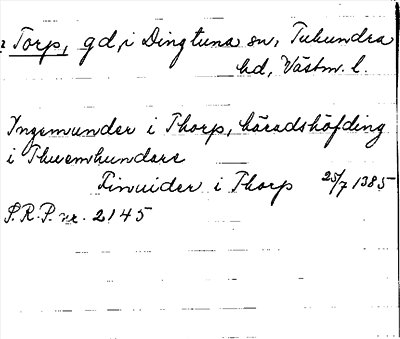 Torp, gd, i Dingtuna sn, Tuhundra
hd, Västm. l.
Ingemunder i Thorp, häradshöfding
i Thwemhundare
Finuider i Thorp 25/7 1385
S.R.P. nr. 2145